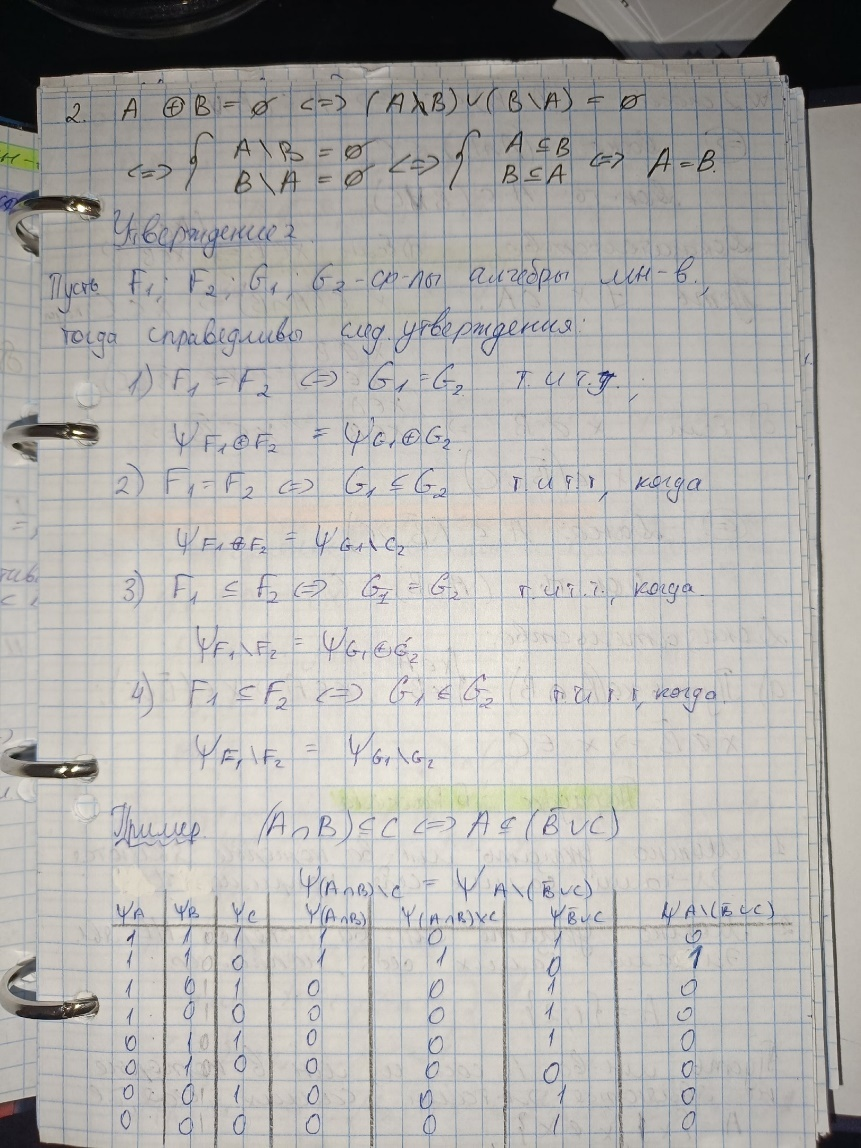 2. A ⊕ B = ∅ <=> (A \ B) ∪ (B \ A) = ∅
<=> { A \ B = ∅ <=> { A ⊆ B <=> A = B.
B \ A = ∅ B ⊆ A
Утверждение 2.
Пусть F₁; F₂; G₁; G₂ - ф-лы алгебры мн-в,
тогда справедливы след. утверждения:
1) F₁ = F₂ <=> G₁ = G₂ т. и т. т.;
ψ F₁⊕F₂ = ψ G₁⊕G₂
2) F₁ = F₂ <=> G₁ ⊆ G₂ т. и т. т, когда
ψ F₁⊕F₂ = ψ G₁\G₂
3) F₁ ⊆ F₂ <=> G₁ = G₂ т. и т. т., когда
ψ F₁\F₂ = ψ G₁⊕G₂
4) F₁ ⊆ F₂ <=> G₁ ⊆ G₂ т. и т. т, когда
ψ F₁\F₂ = ψ G₁\G₂
Пример (A∩B)⊆C <=> A⊆(B̅∪C)
ψ (A∩B)\C = ψ A\(B̅∪C)
ψA ψB ψC ψ(A∩B) ψ(A∩B)\C ψB̅∪C ψA\(B̅∪C)
1 1 1 1 0 1 0
1 1 0 1 1 0 1
1 0 1 0 0 1 0
1 0 0 0 0 1 0
0 1 1 0 0 1 0
0 1 0 0 0 0 0
0 0 1 0 0 1 0
0 0 0 0 0 1 0